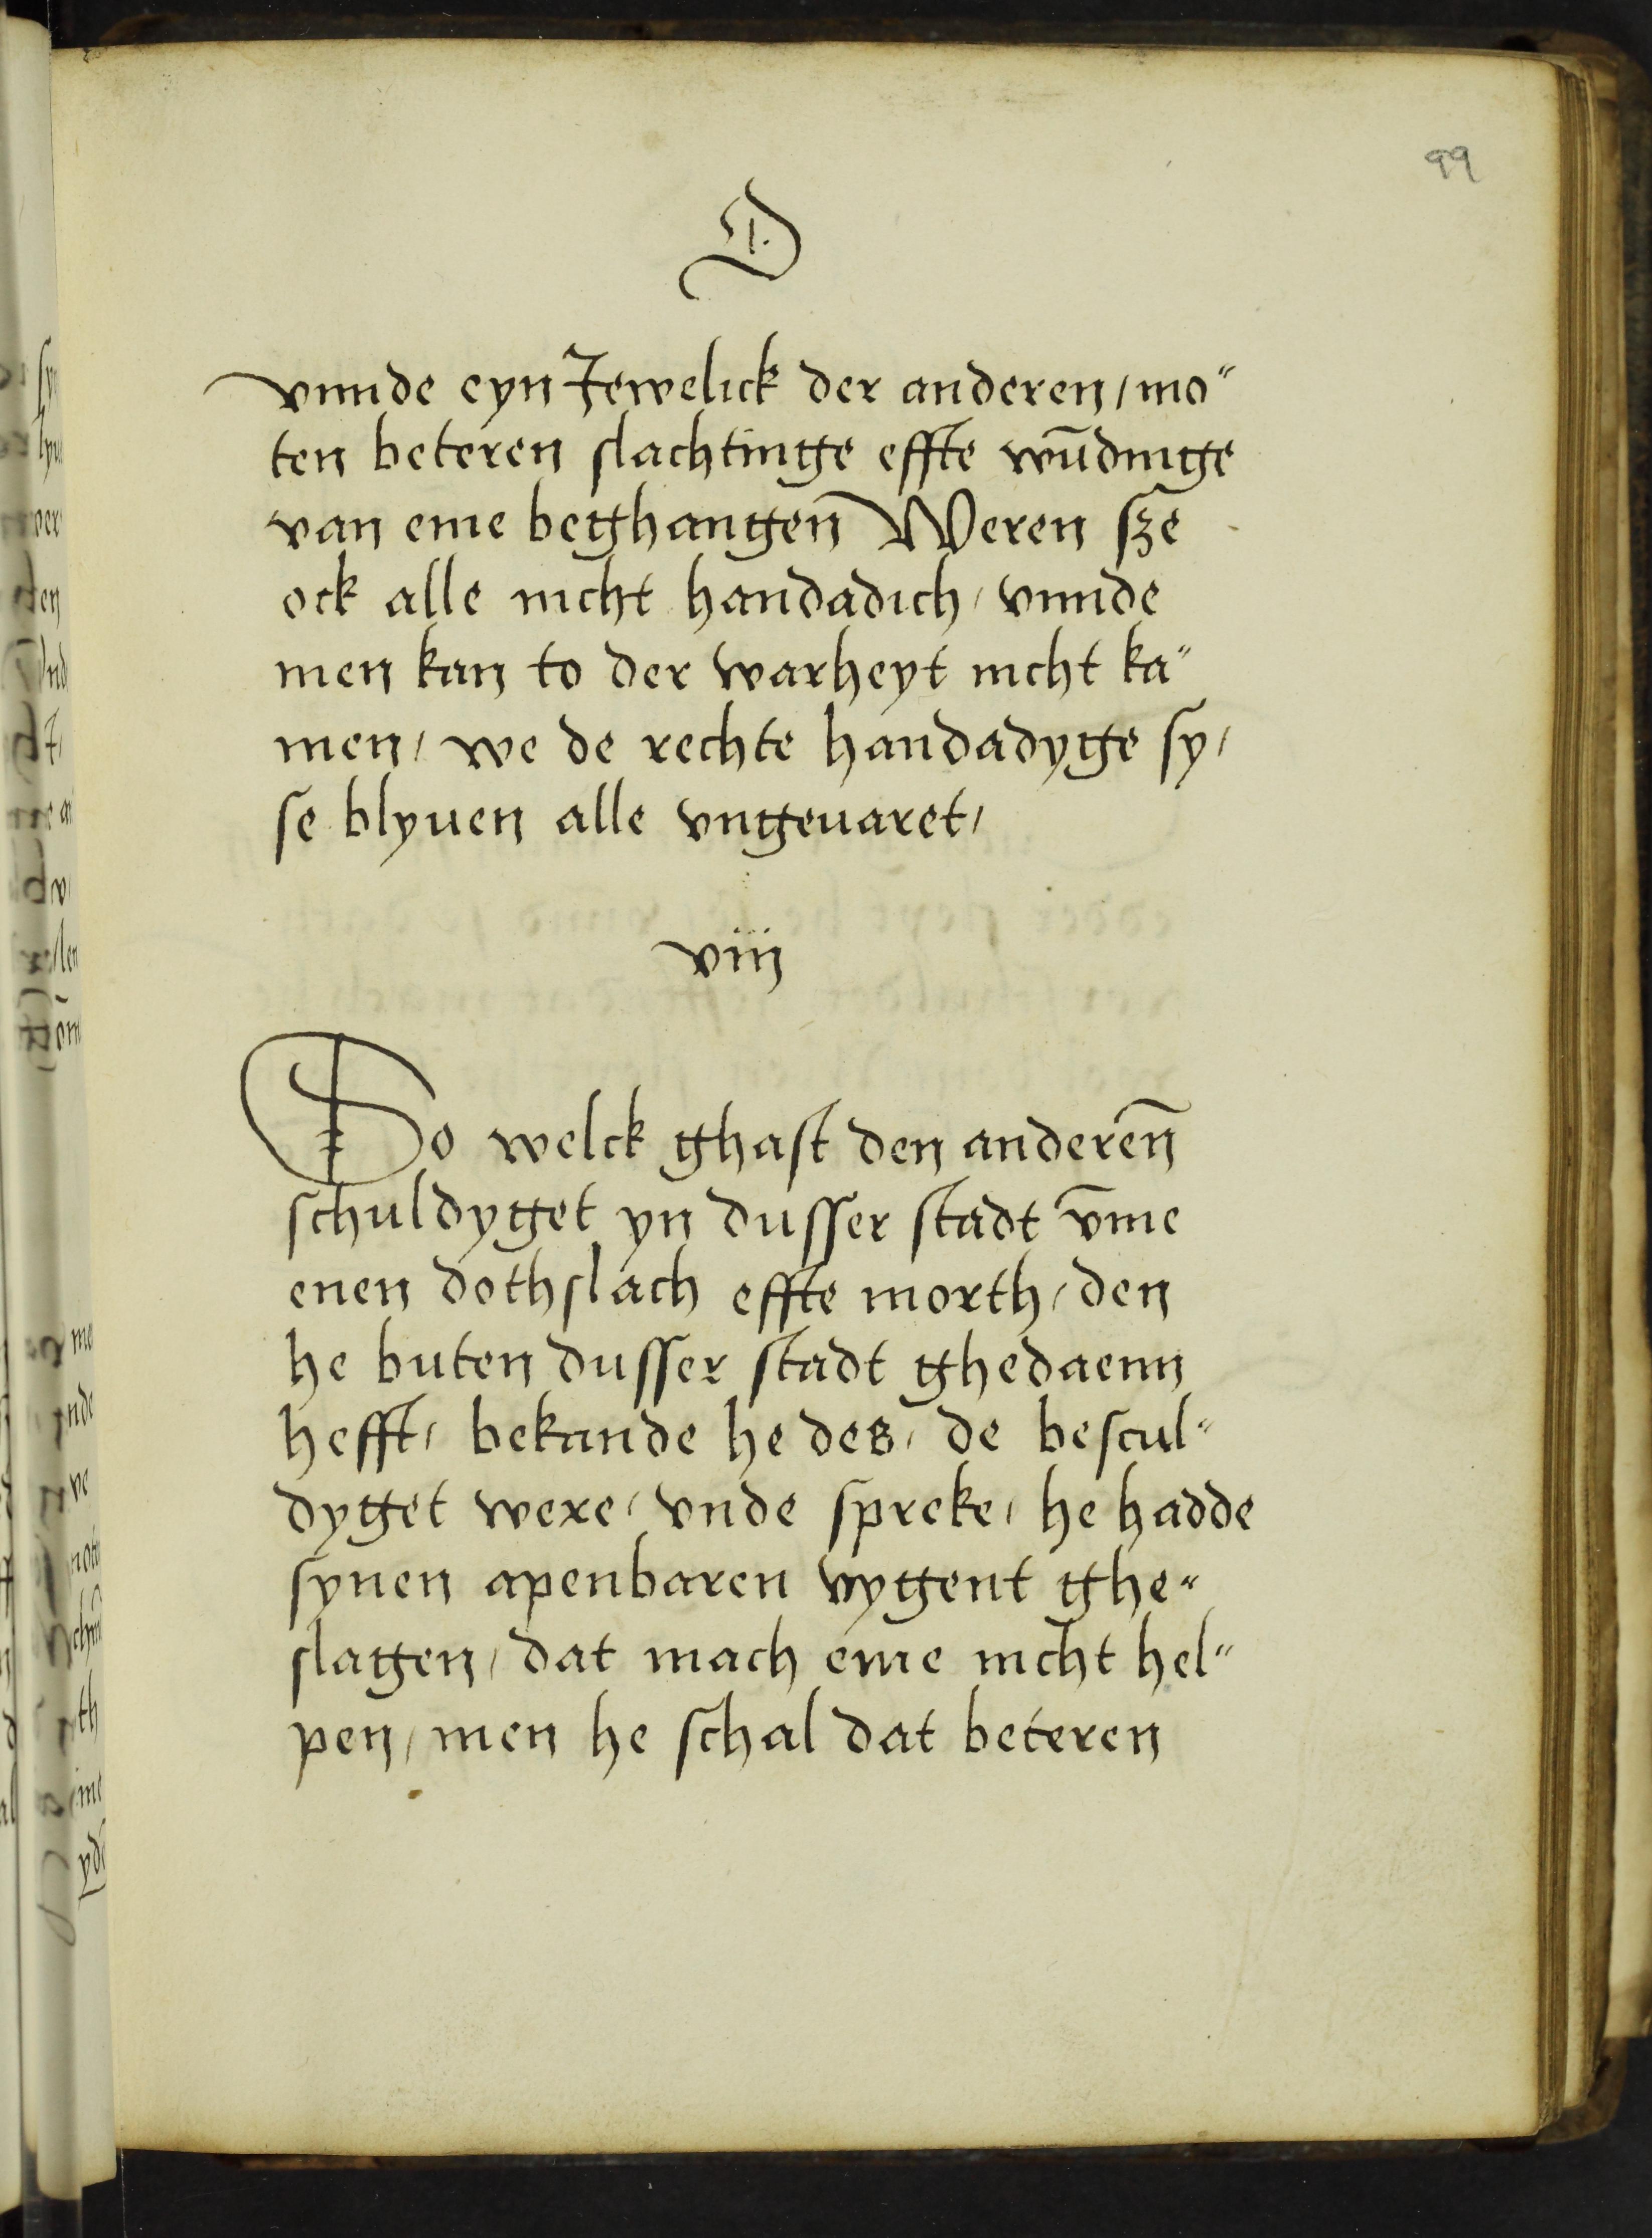 99
D
vnnde eyn Jewelick der anderen / mo"
ten beteren slachtinge effte wūdinge
van eme beghangen̄ Weren sze
ock alle nicht handadich / vnnde
men kan to der warheyt nicht ka"
men / we de rechte handadyge sy /
se blyuen alle vngeuaret /
viij
So welck ghast den anderen̄
schuldyget yn dusser stadt v̄me
enen dothslach effte morth / den
he buten dusser stadt ghedaenn
hefft / bekande he des / de bescul"
dyget were / vnde spreke / he hadde
synen apenbaren vygent ghe"
slagen / dat mach eme nicht hel"
pen / men he schal dat beteren